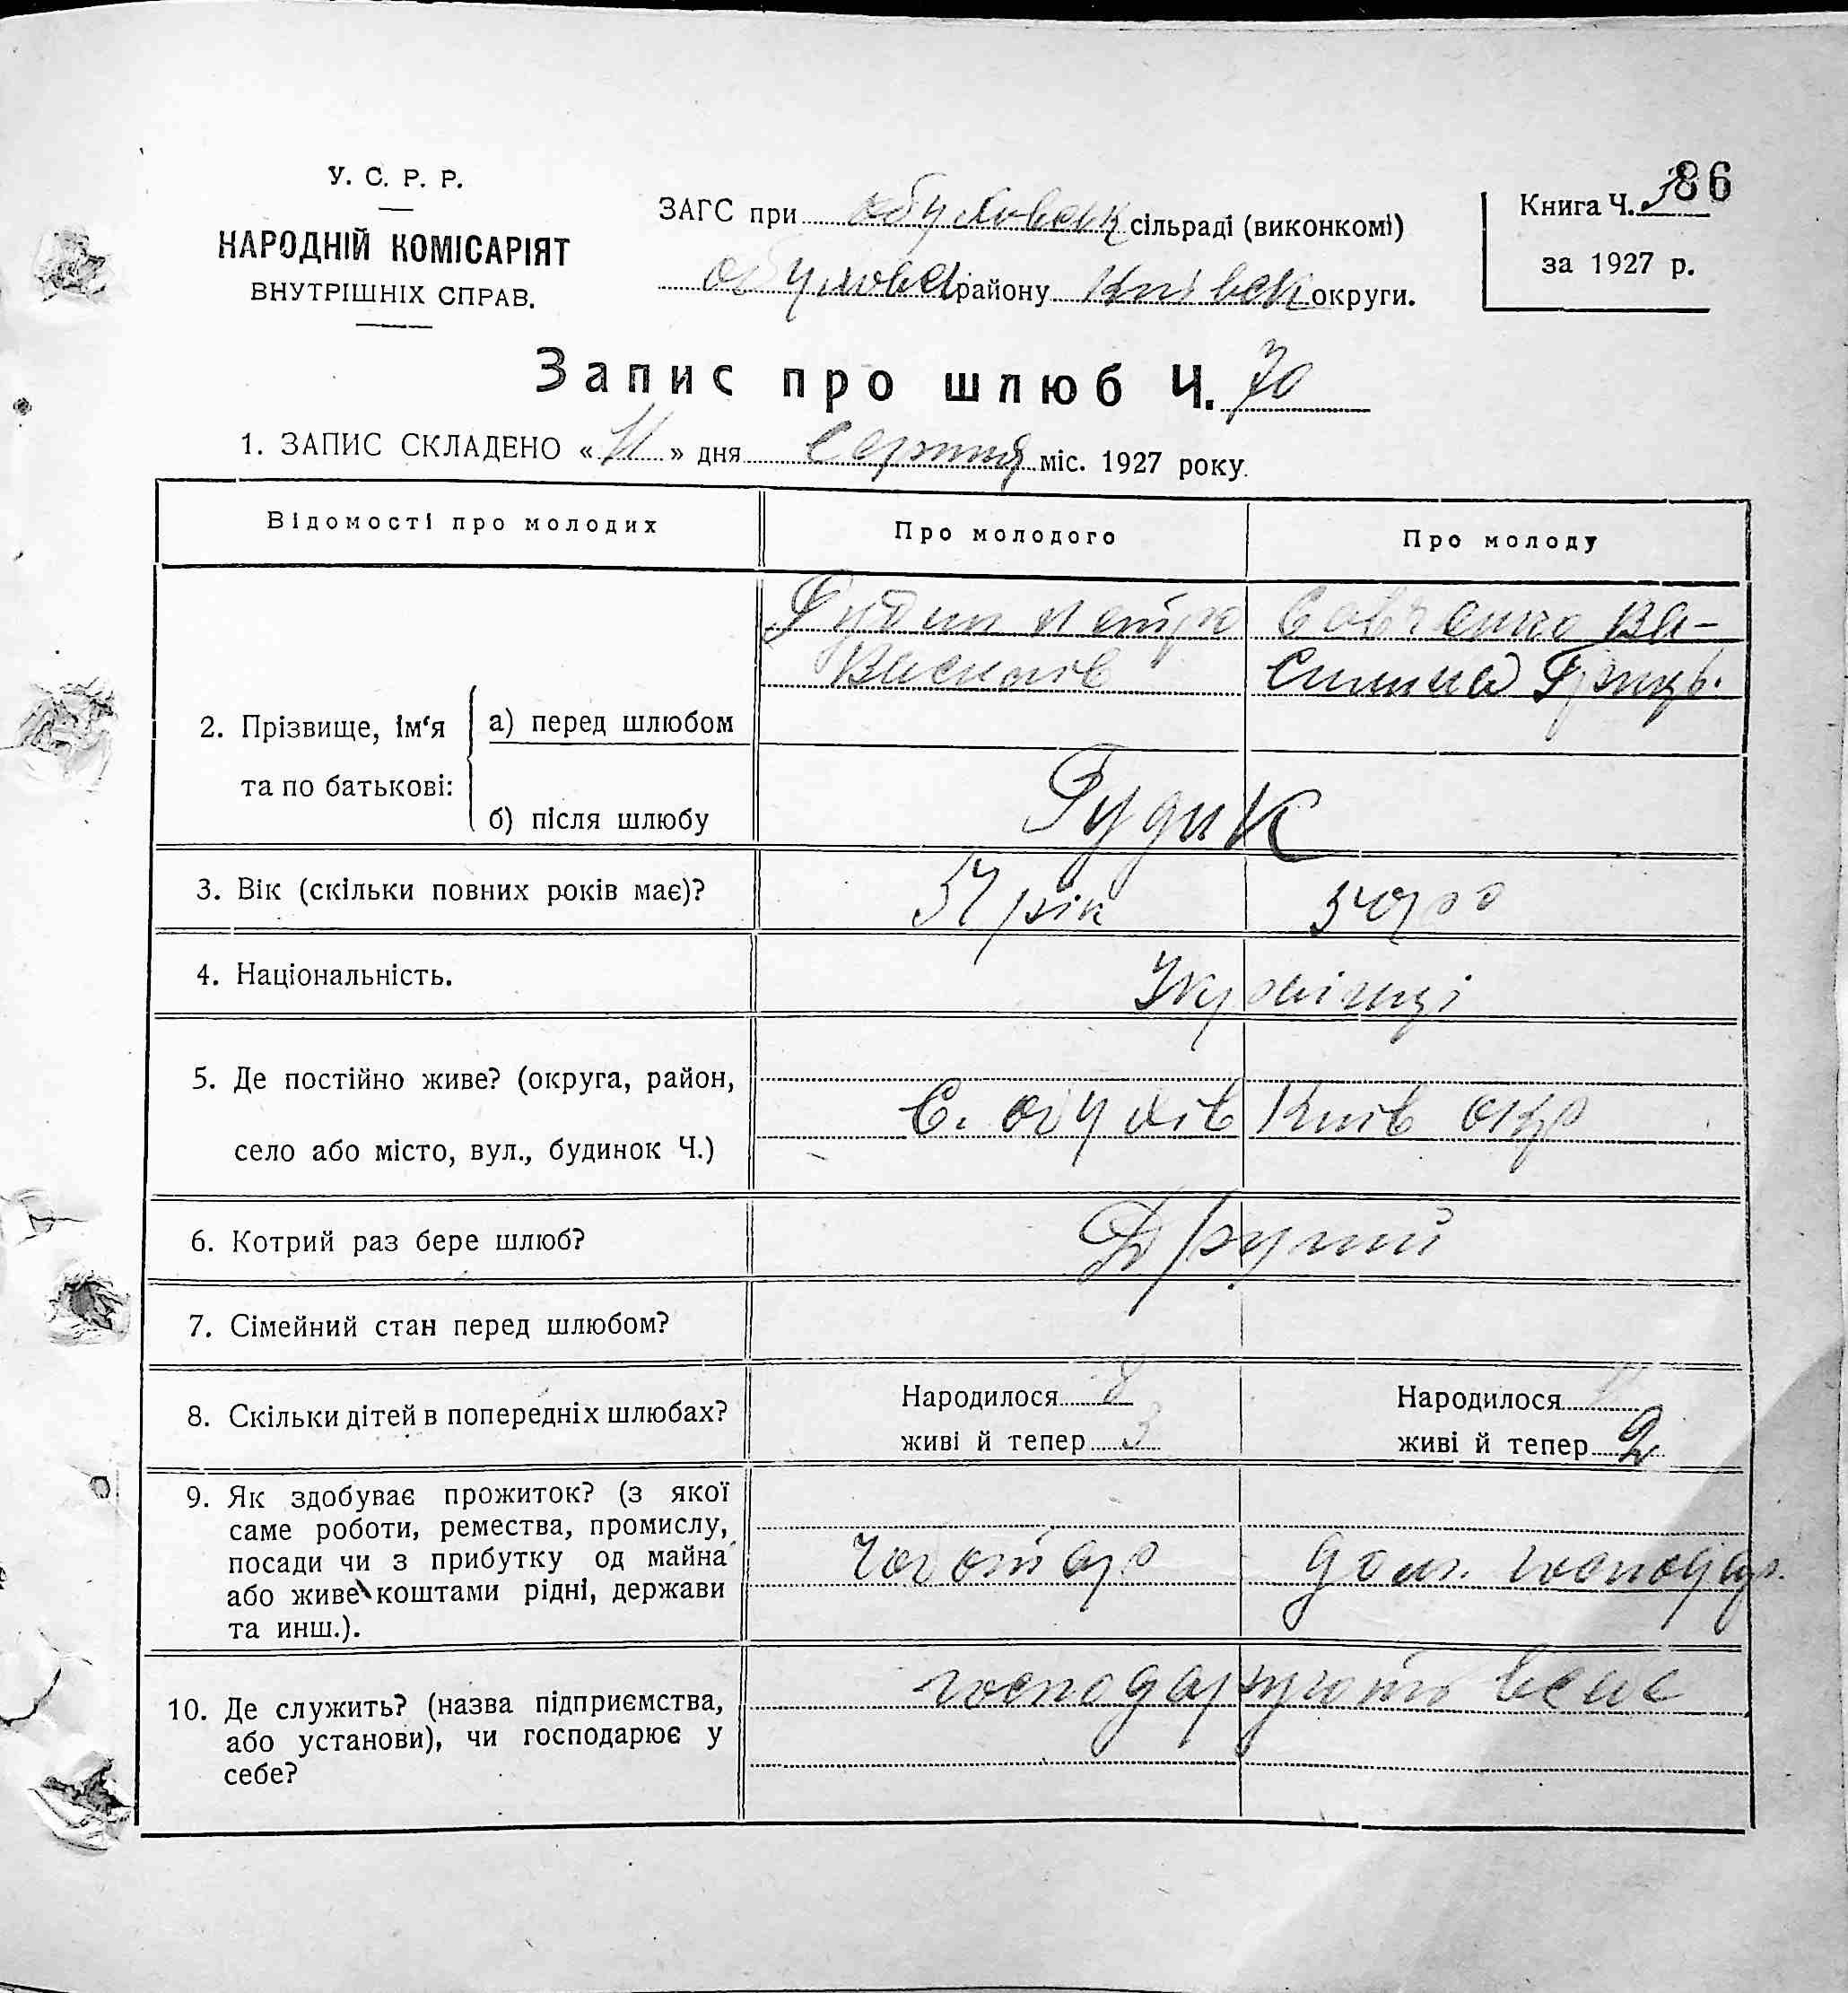 У. С. Р. Р.
НАРОДНІЙ КОМІСАРІЯТ
ВНУТРІШНІХ СПРАВ.
ЗАГС при обуховськ сільраді (виконкомі)
обуховськ району Київськ округи.
Книга Ч.
86
за 1927 р.
Запис про шлюб Ч. 70
1. ЗАПИС СКЛАДЕНО « 11 » дня Серпня міс. 1927 року.
Відомості про молодих
Про молодого
Про молоду
2. Прізвище, ім‘я та по батькові:
а) перед шлюбом
Гудик Петро
Васильов
Савченко Ва-
силина Грицьк.
б) після шлюбу
Гудик
3. Вік (скільки повних років має)?
рік
4. Національність.
Українці
5. Де постійно живе? (округа, район,
село або місто, вул., будинок Ч.)
С. обухів Київ окр
6. Котрий раз бере шлюб?
Другий
7. Сімейний стан перед шлюбом?
8. Скільки дітей в попередніх шлюбах?
Народилося
живі й тепер 3
Народилося
живі й тепер 2
9. Як здобуває прожиток? (з якої
саме роботи, ремества, промислу,
посади чи з прибутку од майна
або живе коштами рідні, держави
та инш.).
Чоботар
дом. господар.
10. Де служить? (назва підприємства,
або установи), чи господарює у
себе?
господарюють